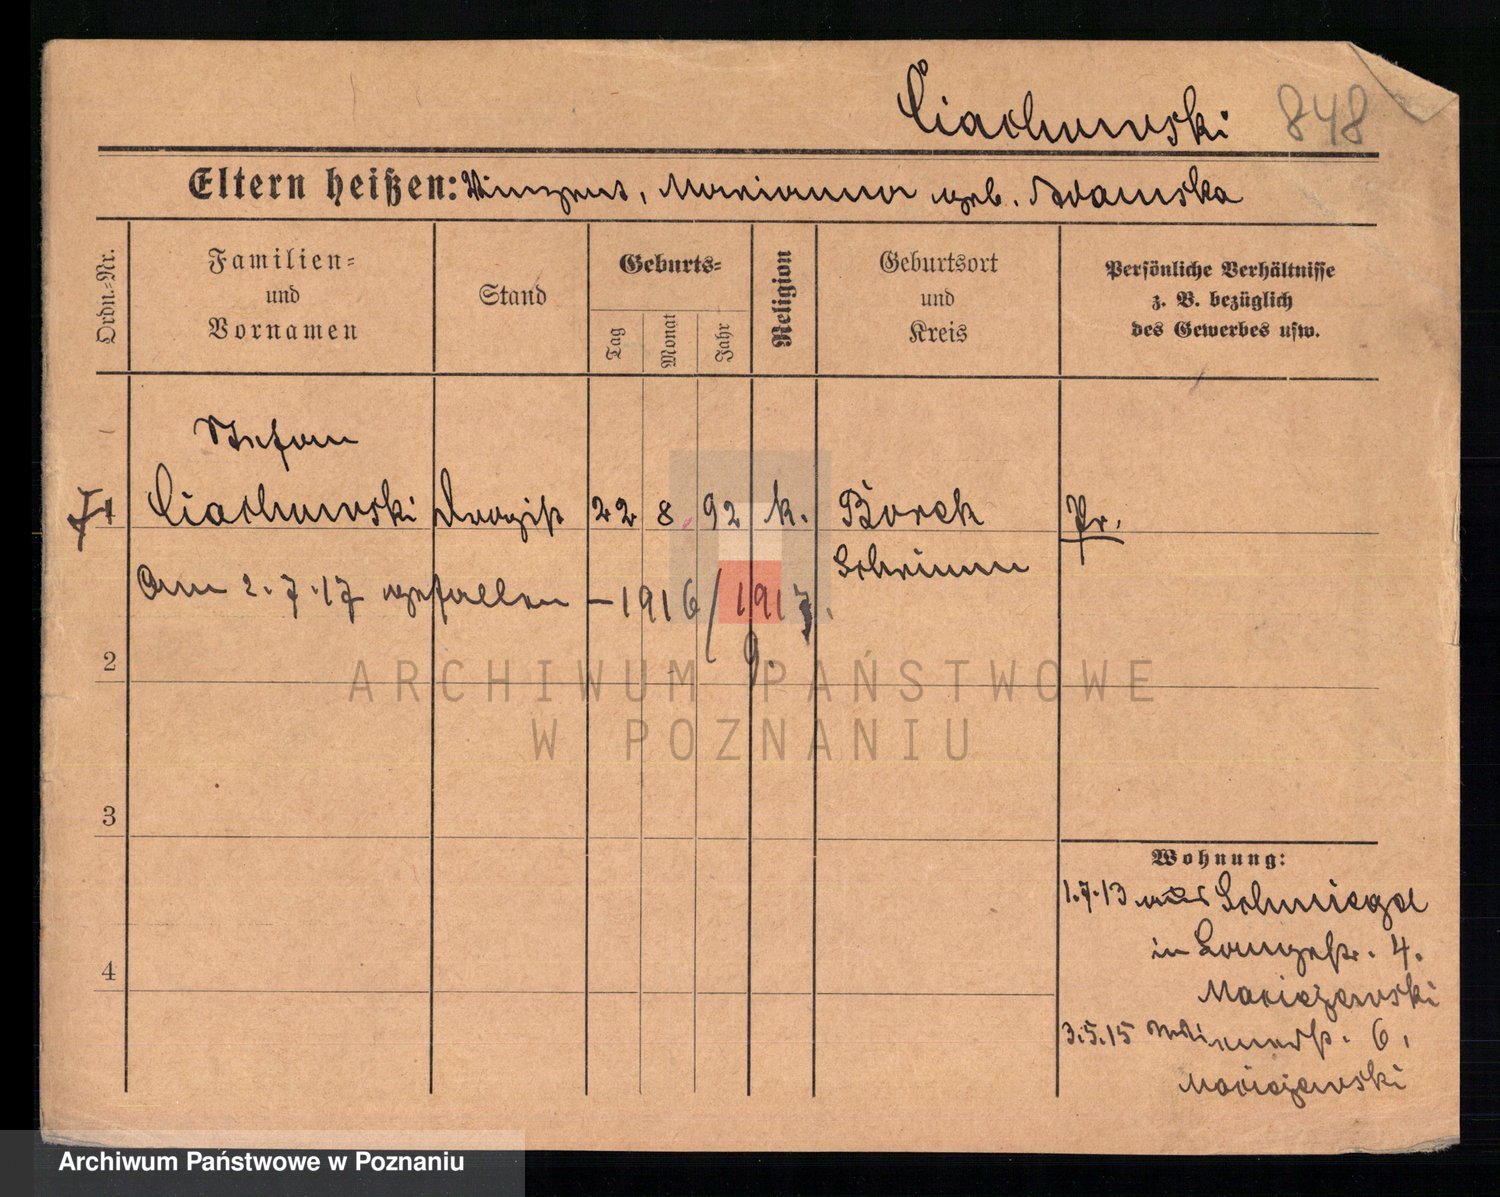 Ciachowski 848
Eltern heißen: Vinzent, Marianna geb. Adamska
Ordn.-Nr.
Familien-
und
Vornamen
Stand
Geburts-
Tag
Monat
Jahr
Religion
Geburtsort
und
Kreis
Persönliche Verhältnisse
z. B. bezüglich
des Gewerbes usw.
Stefan
1 Ciachowski Drogist 22 8. 92 k. Borek Pr.
Schrimm
Am 2.7.17 gefallen – 1916/1917.
9.
2
3
4
Wohnung:
1.7.13 aus Schmiegel
in Langestr. 4.
Maciejewski
3.5.15 Wienerstr. 6.
Maciejewski
ARCHIWUM PAŃSTWOWE
W POZNANIU
Archiwum Państwowe w Poznaniu